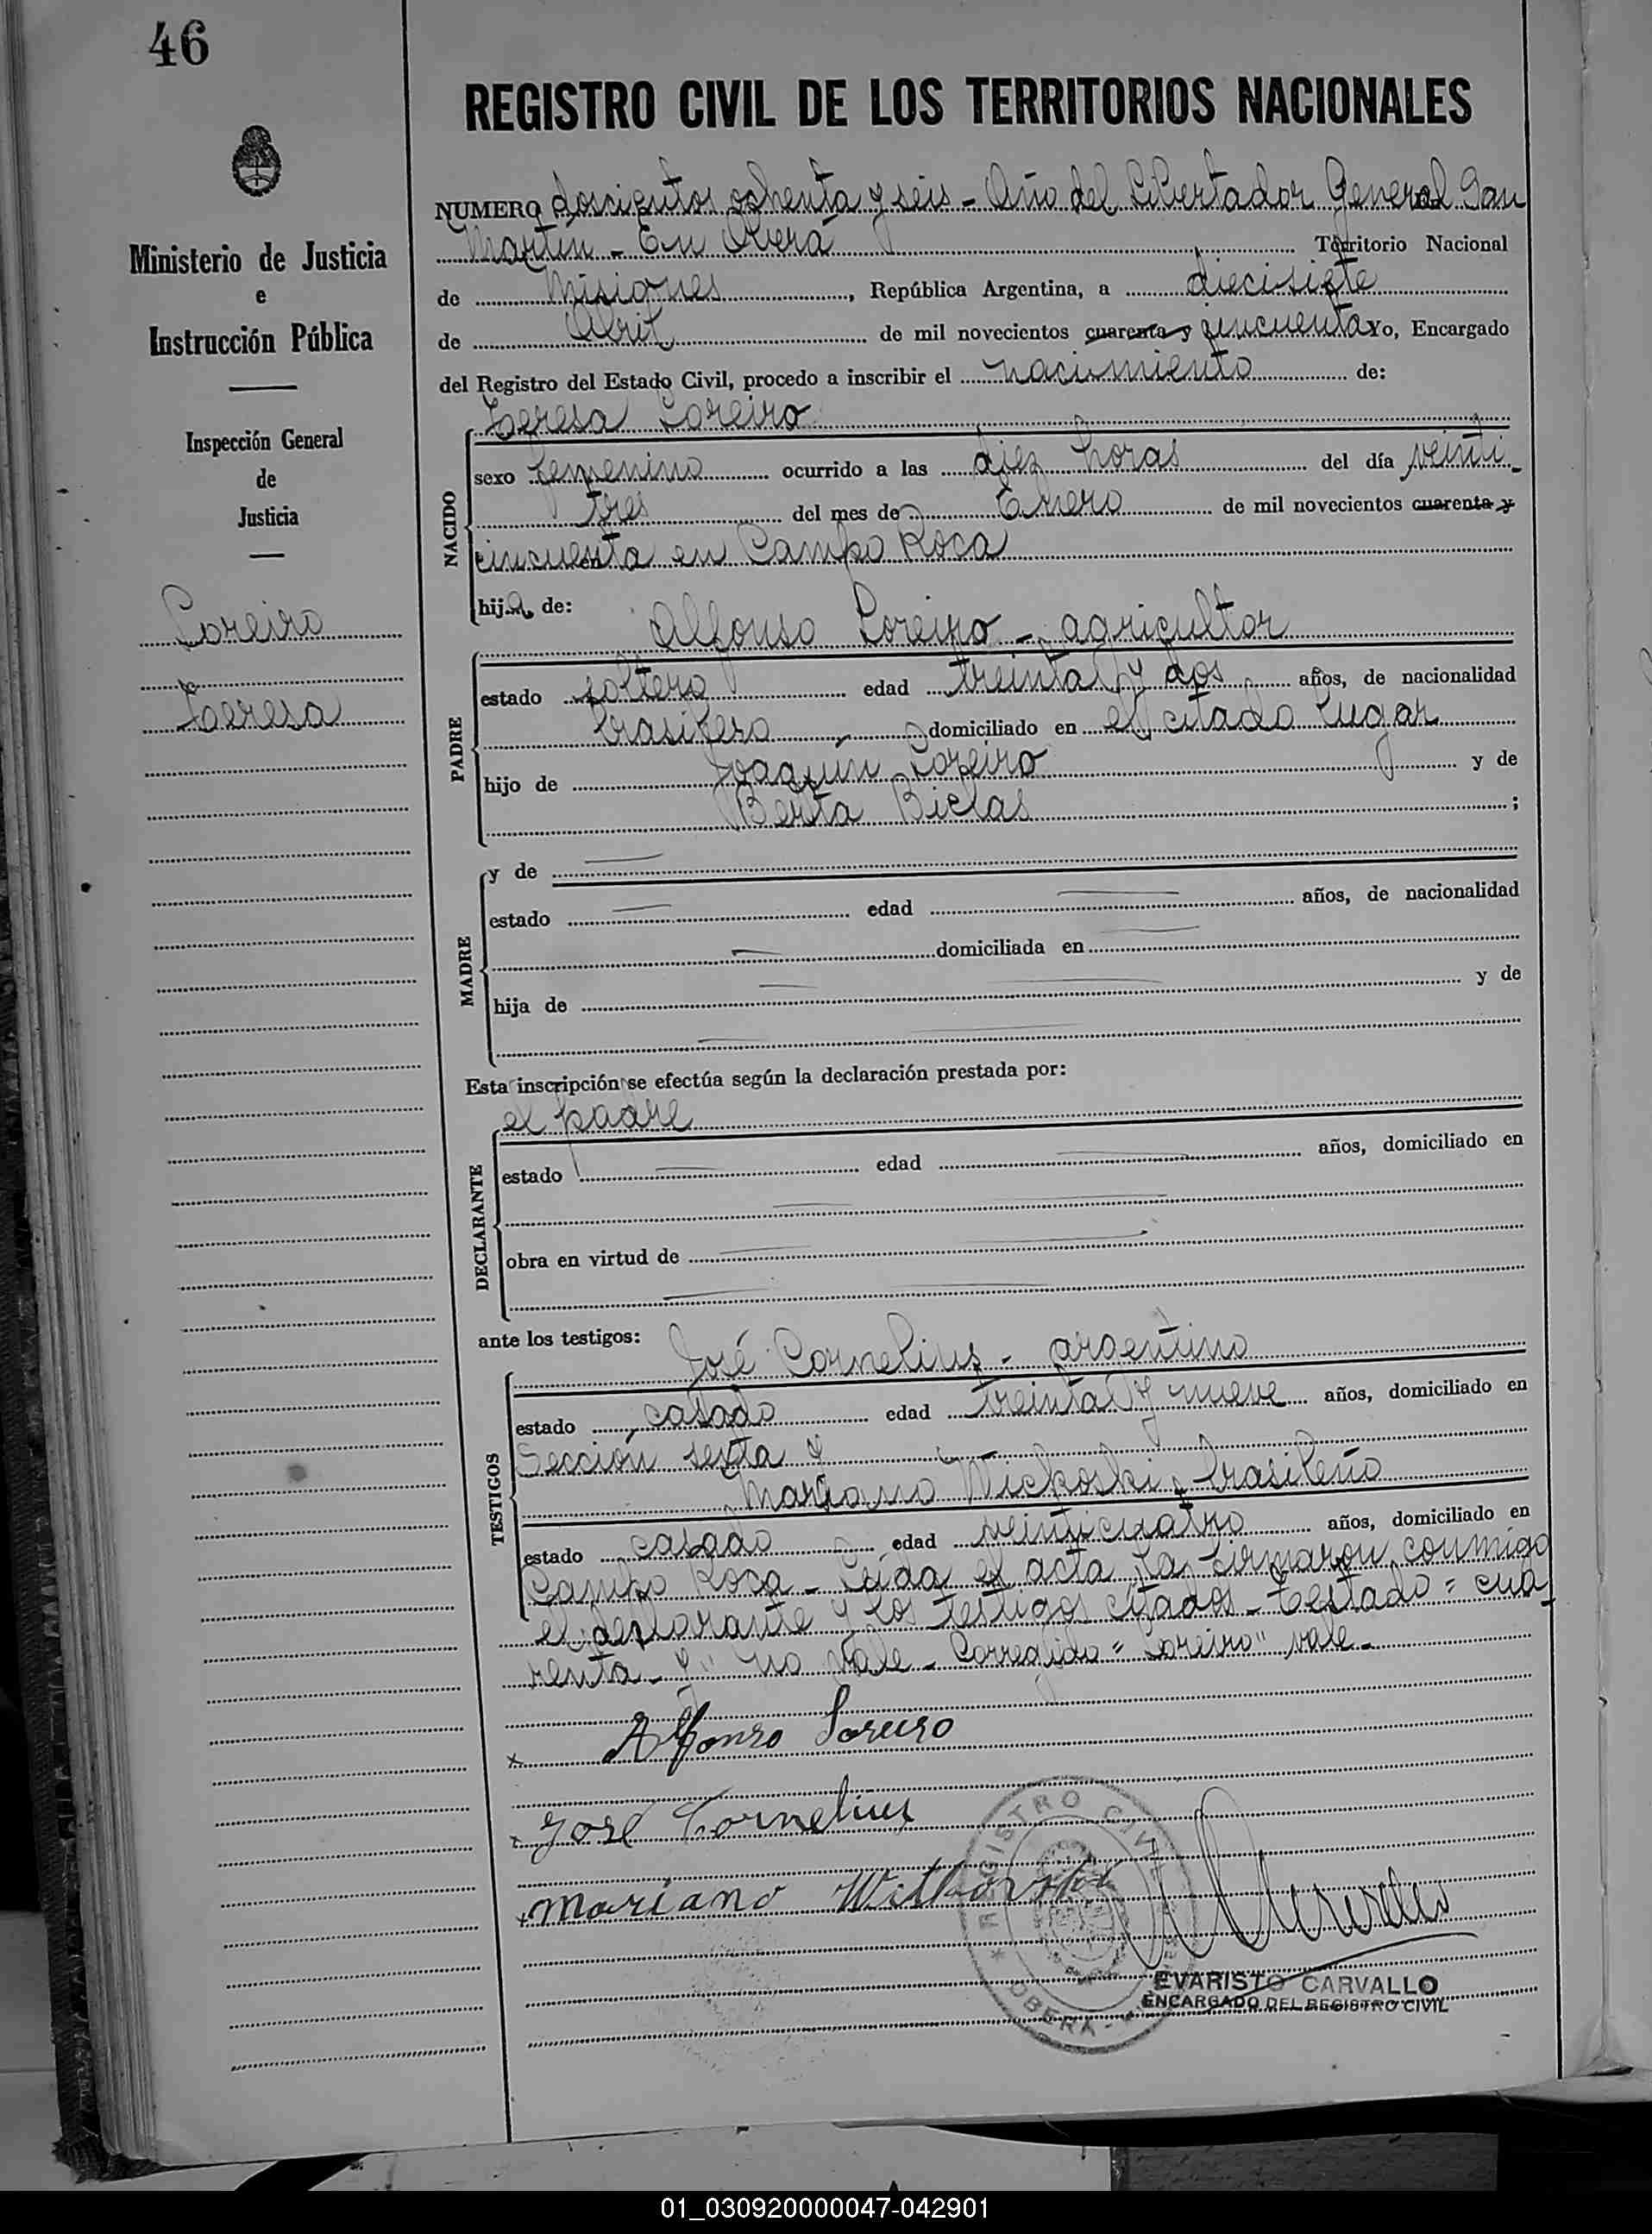 46
REGISTRO CIVIL DE LOS TERRITORIOS NACIONALES
Ministerio de Justicia
e
Instrucción Pública
Inspección General
de
Justicia
Loreiro
Teresa
NUMERO doscientos ochenta y seis - Año del Libertador General San
Martín - En Oberá Territorio Nacional
de Misiones, República Argentina, a diecisiete
de Abril de mil novecientos cuarenta y cincuenta Yo, Encargado
del Registro del Estado Civil, procedo a inscribir el nacimiento de:
Teresa Loreiro
NACIDO
sexo femenino ocurrido a las diez horas del día veinti-
tres del mes de Enero de mil novecientos cuarenta y
cincuenta en Campo Roca
hija de:
Alfonso Loreiro - agricultor
PADRE
estado soltero edad treinta y dos años, de nacionalidad
brasilero domiciliado en el citado lugar
hijo de Joaquín Loreiro y de
Berta Biclas ;
MADRE
y de
estado edad años, de nacionalidad
domiciliada en
hija de y de
Esta inscripción se efectúa según la declaración prestada por:
el padre
DECLARANTE
estado edad años, domiciliado en
obra en virtud de
ante los testigos:
José Cornelius - argentino
TESTIGOS
estado casado edad treinta y nueve años, domiciliado en
Sección sexta y
Mariano Wickoski, brasileño
estado casado edad veinticuatro años, domiciliado en
Campo Roca - Leída el acta la firmaron conmigo
el declarante y los testigos citados - Testado = cua
renta - y" no vale - Corregido = "Loreiro" vale -
x Alfonso
x José Cornelius
x Mariano
REGISTRO CIVIL
OBERA -
EVARISTO CARVALLO
ENCARGADO DEL REGISTRO CIVIL
01_030920000047-042901